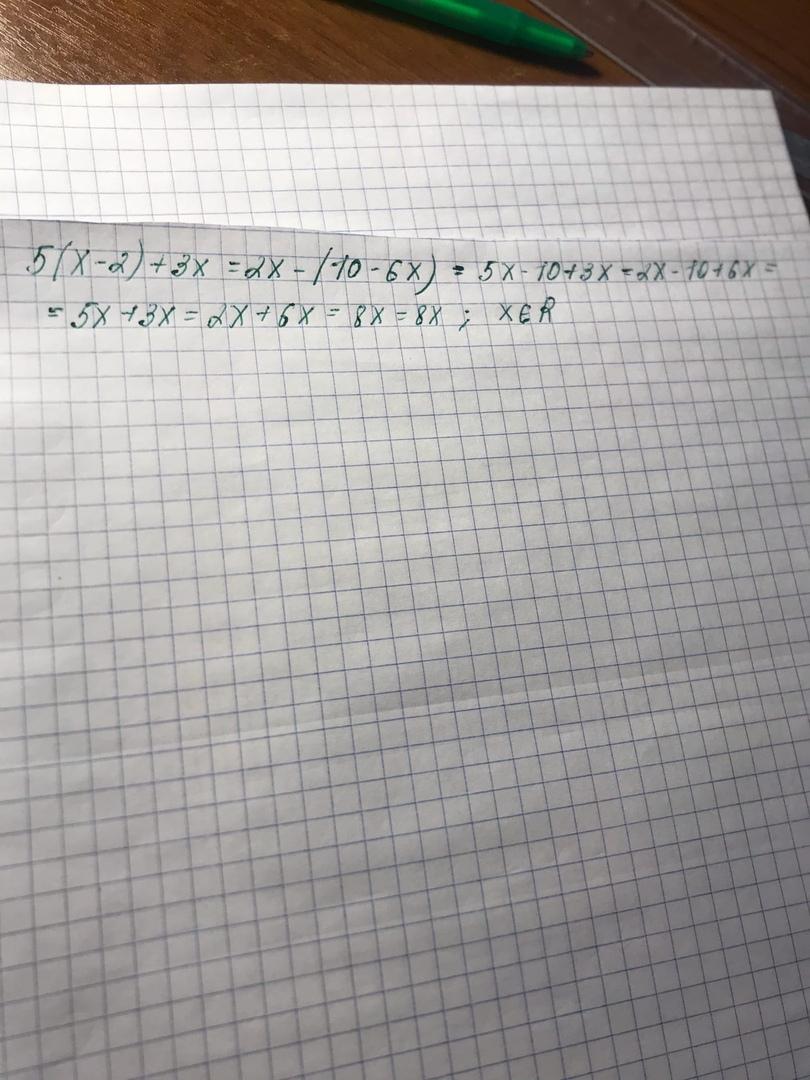 5(x-2)+3x = 2x-(10-6x) = 5x-10+3x=2x-10+6x=
= 5x+3x=2x+6x= 8x=8x ; x∈R